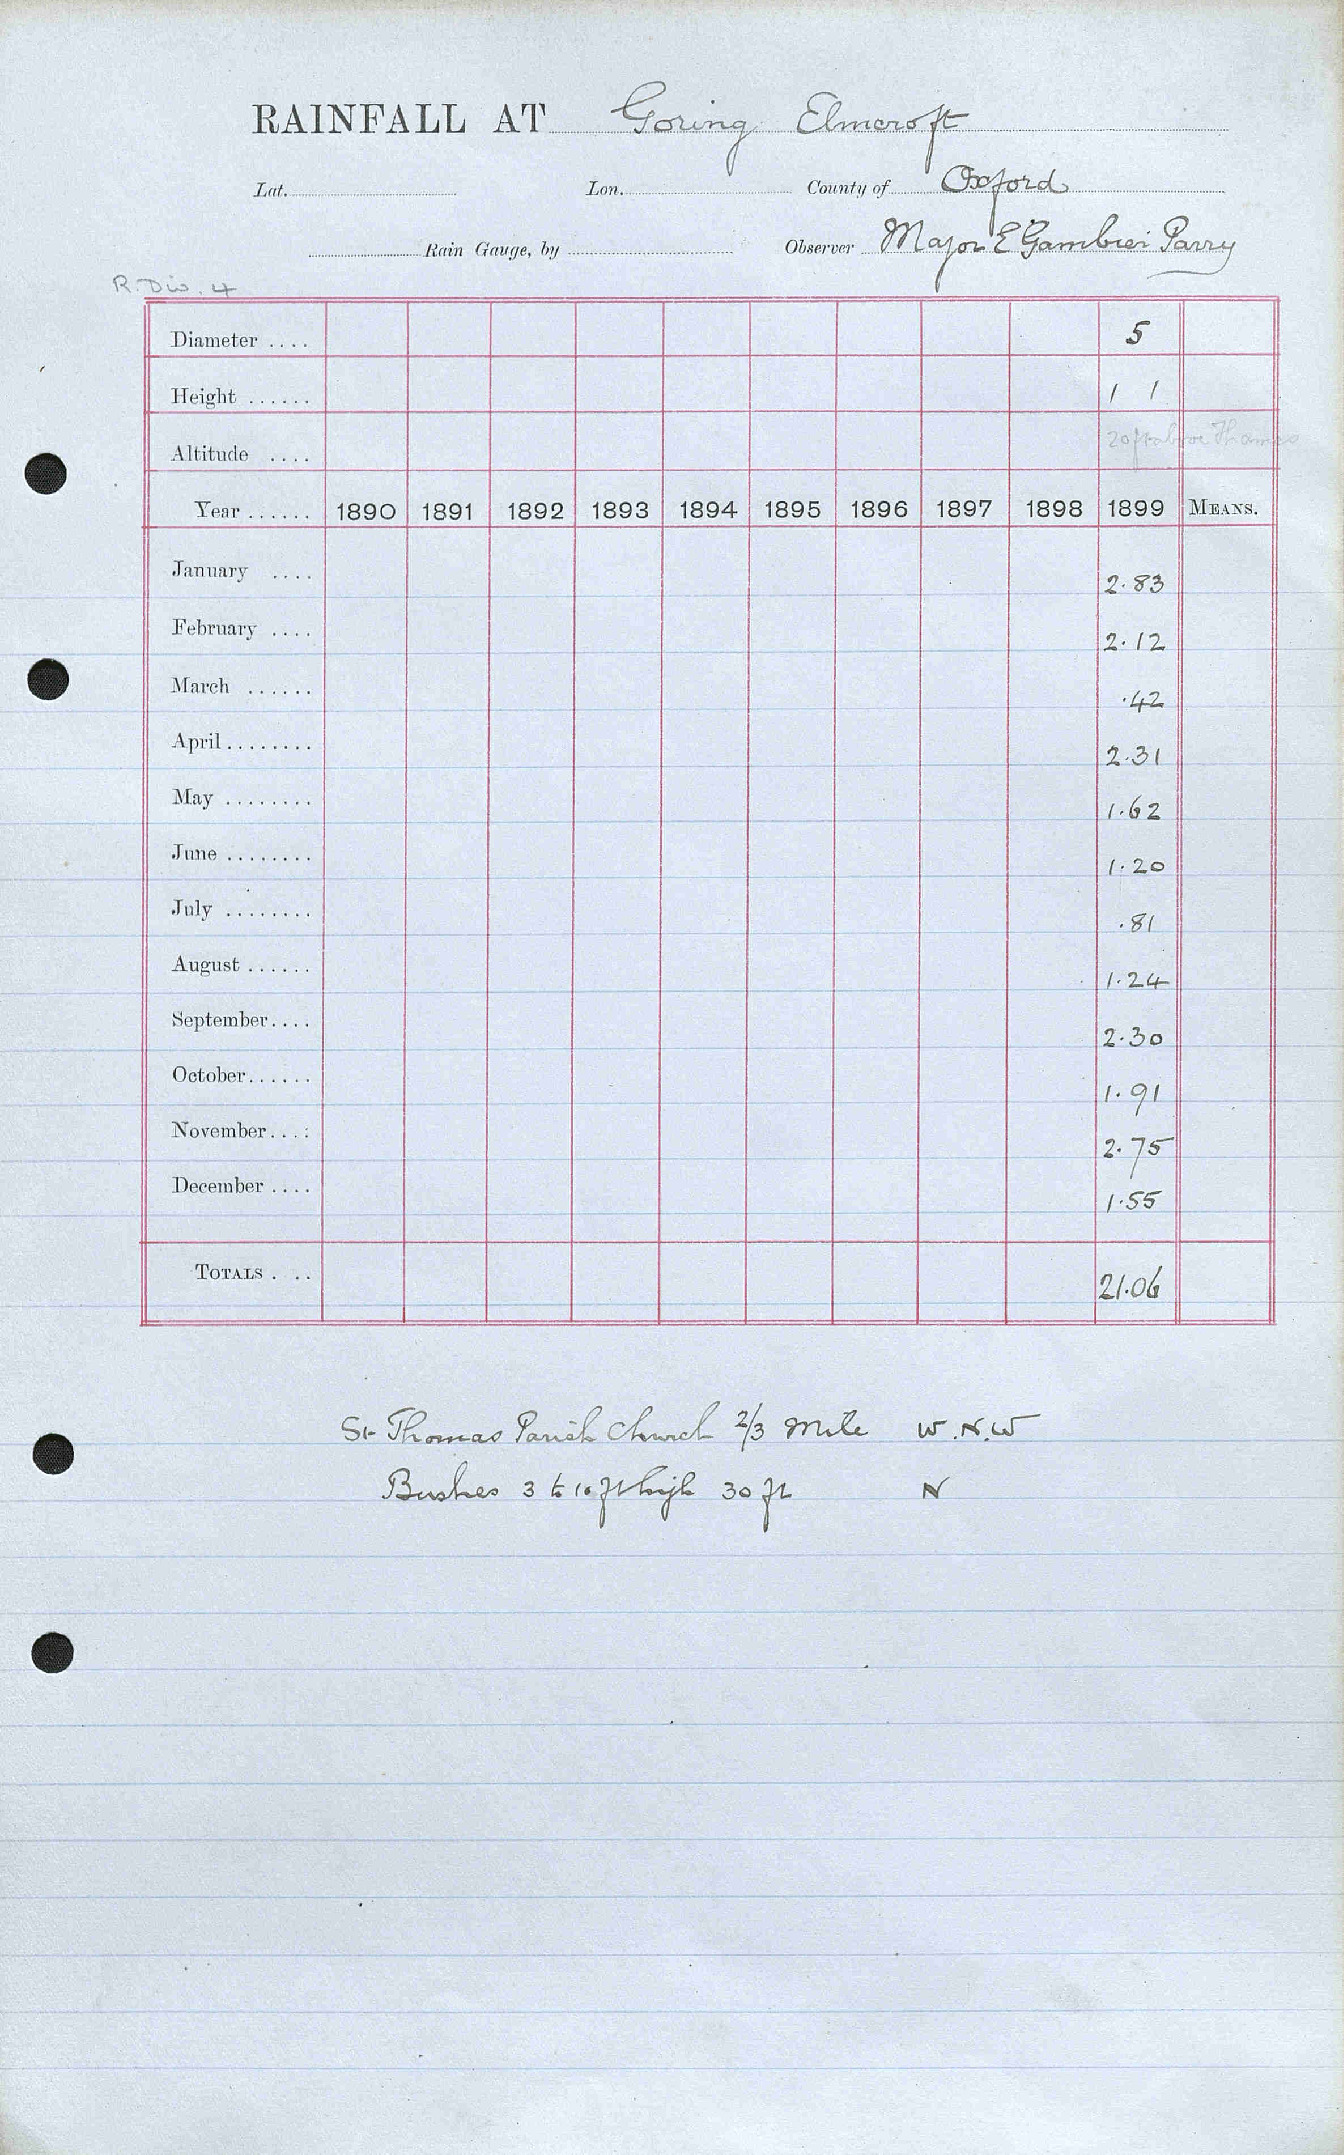 RAINFALL AT Goring Elmcroft
Lat. Lon. County of Oxford
Rain Gauge, by Observer Major E Gambier Parry
R. Div. 4
Diameter .... 5
Height ...... 1 1
Altitude .... 20 ft above Thames
Year ...... 1890 1891 1892 1893 1894 1895 1896 1897 1898 1899 MEANS.
January .... 2.83
February .... 2.12
March ...... .42
April ........ 2.31
May ........ 1.62
June ........ 1.20
July ........ .81
August ...... 1.24
September.... 2.30
October...... 1.91
November.... 2.75
December .... 1.55
TOTALS . .. 21.06
St Thomas Parish Church 2/3 Mile W.N.W
Bushes 3 to 10 ft high 30 ft N